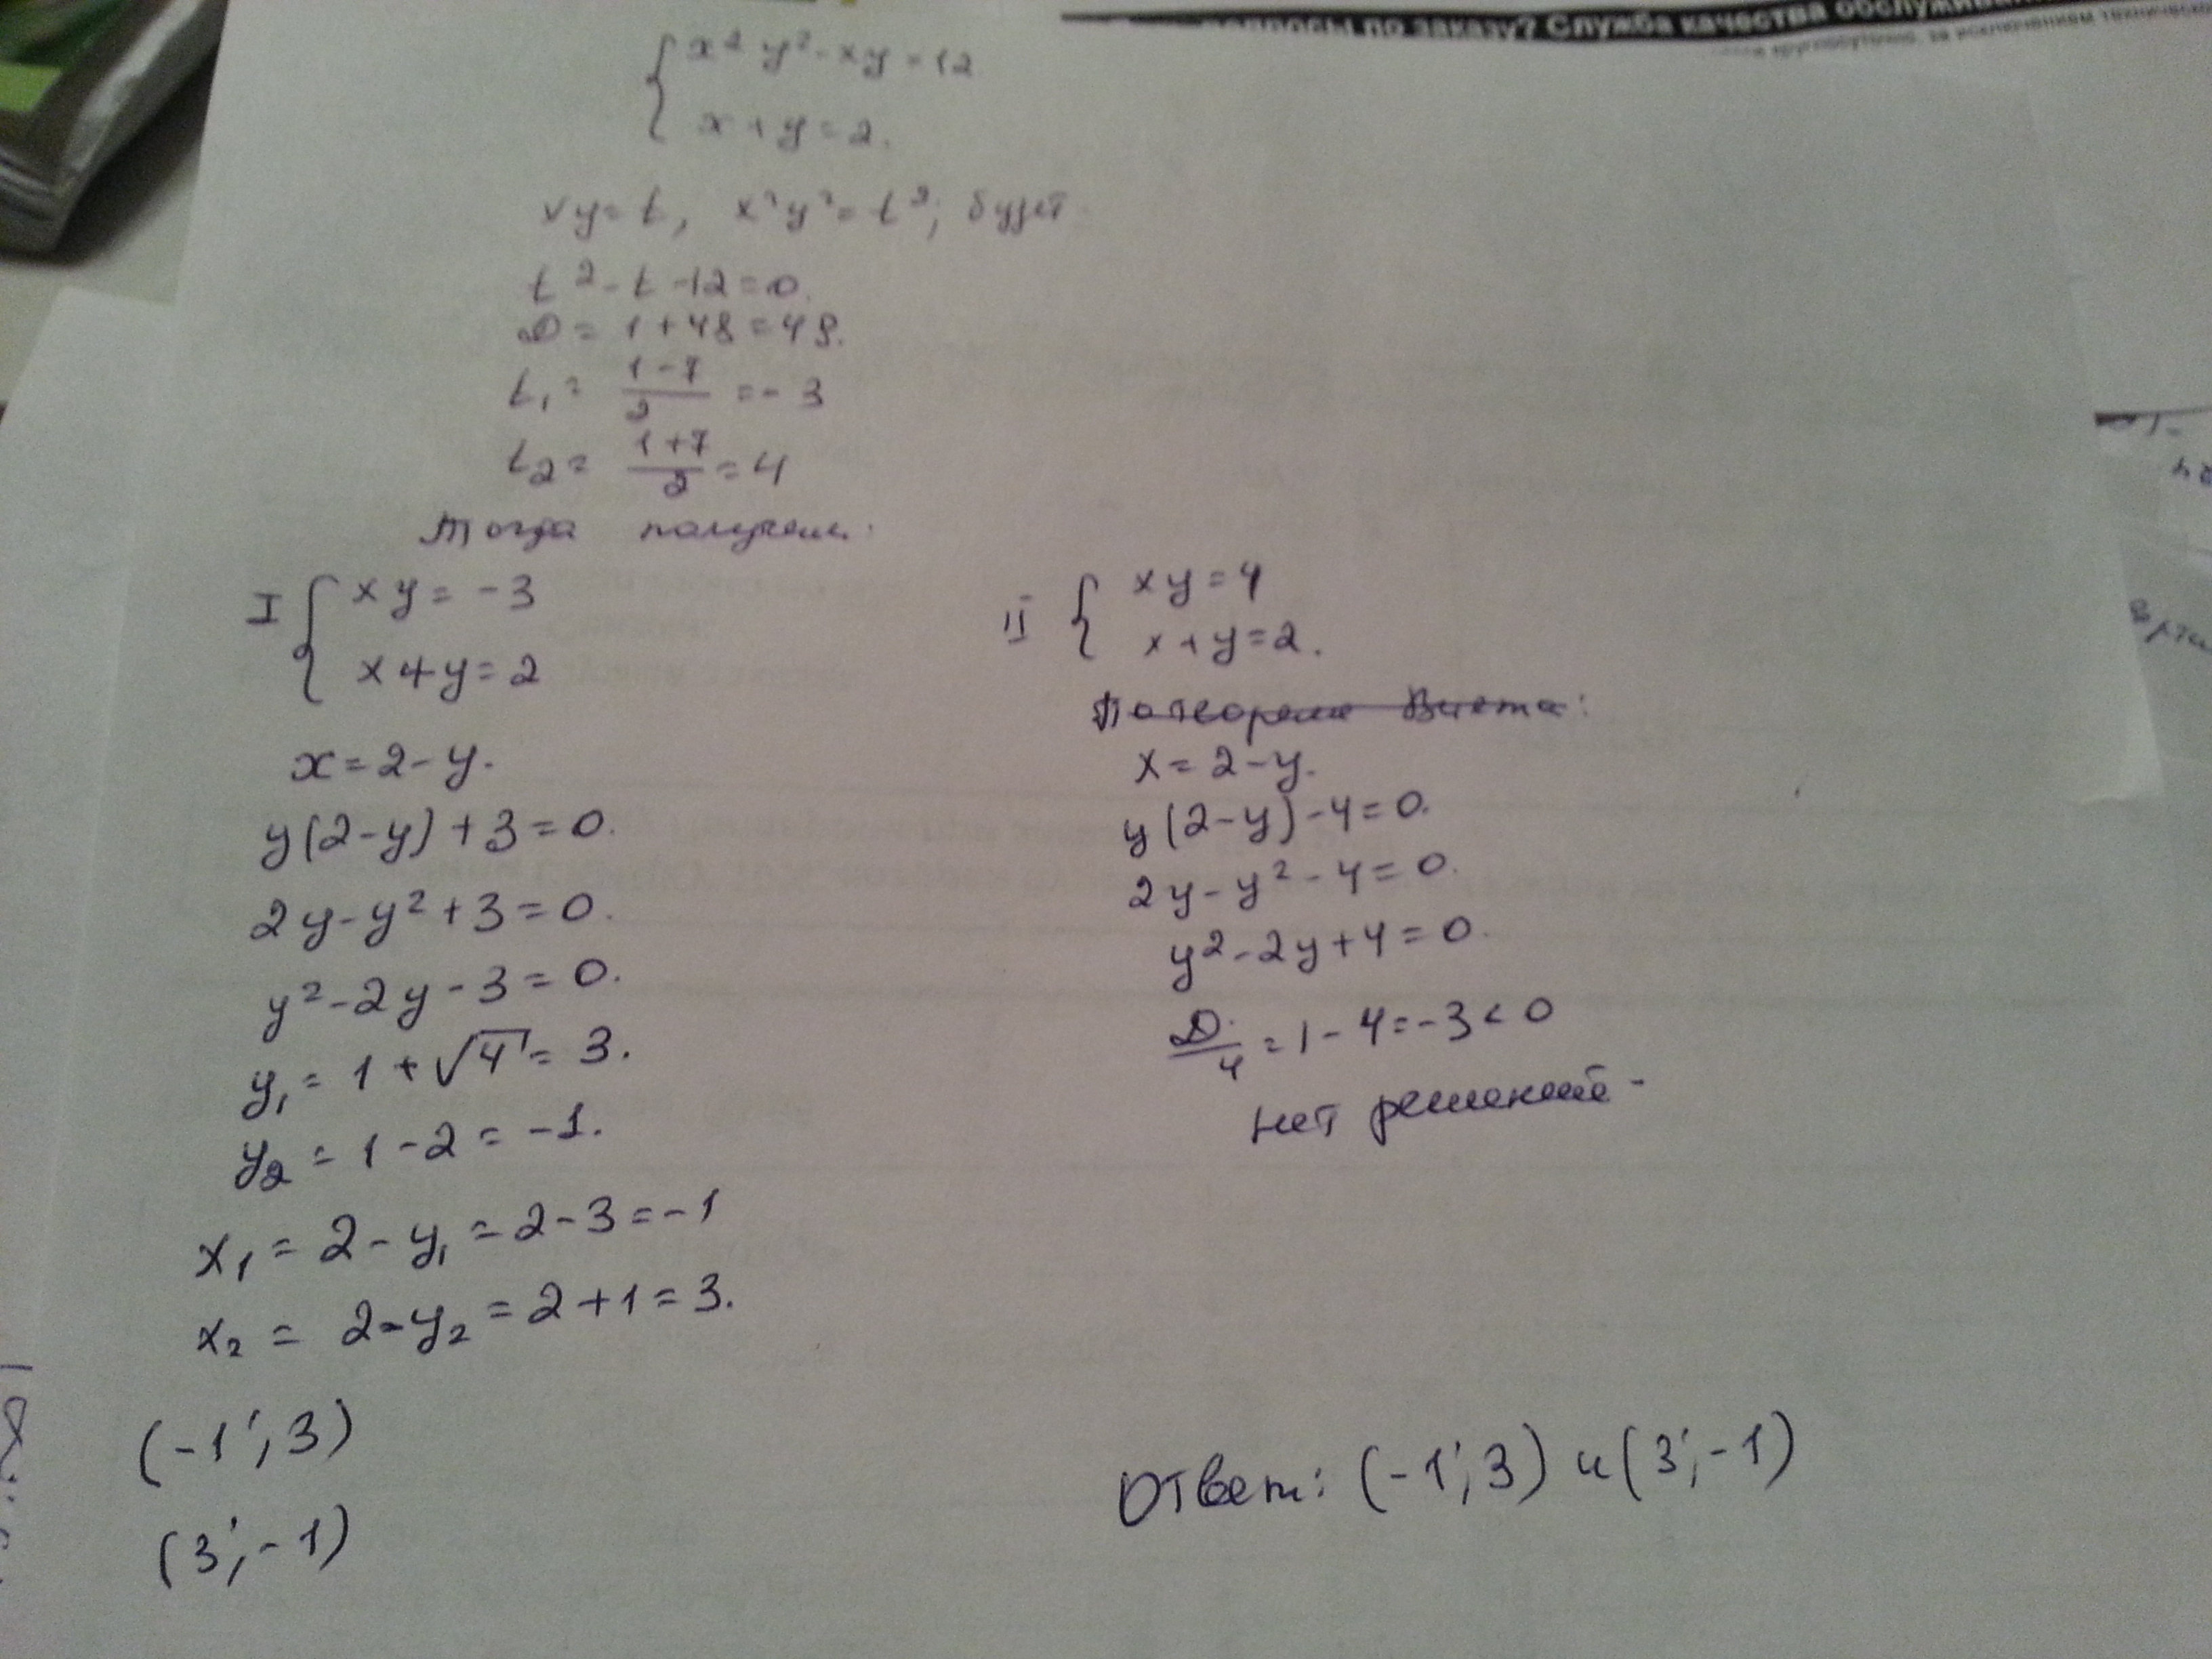 вопросы по заказу? Служба качества
{ x² y² - xy = 12
x + y = 2.
xy = t, x²y² = t²; будет
t² - t - 12 = 0.
D = 1 + 48 = 49.
t₁ = (1-7)/2 = -3
t₂ = (1+7)/2 = 4
Тогда получаем:
I { xy = -3
x + y = 2
x = 2 - y.
y(2-y) + 3 = 0.
2y - y² + 3 = 0.
y² - 2y - 3 = 0.
y₁ = 1 + √4 = 3.
y₂ = 1 - 2 = -1.
x₁ = 2 - y₁ = 2 - 3 = -1
x₂ = 2 - y₂ = 2 + 1 = 3.
(-1; 3)
(3; -1)
II { xy = 4
x + y = 2.
По теореме Виета:
x = 2 - y.
y(2-y) - 4 = 0.
2y - y² - 4 = 0.
y² - 2y + 4 = 0.
D/4 = 1 - 4 = -3 < 0
нет решений -
Ответ: (-1; 3) и (3; -1)